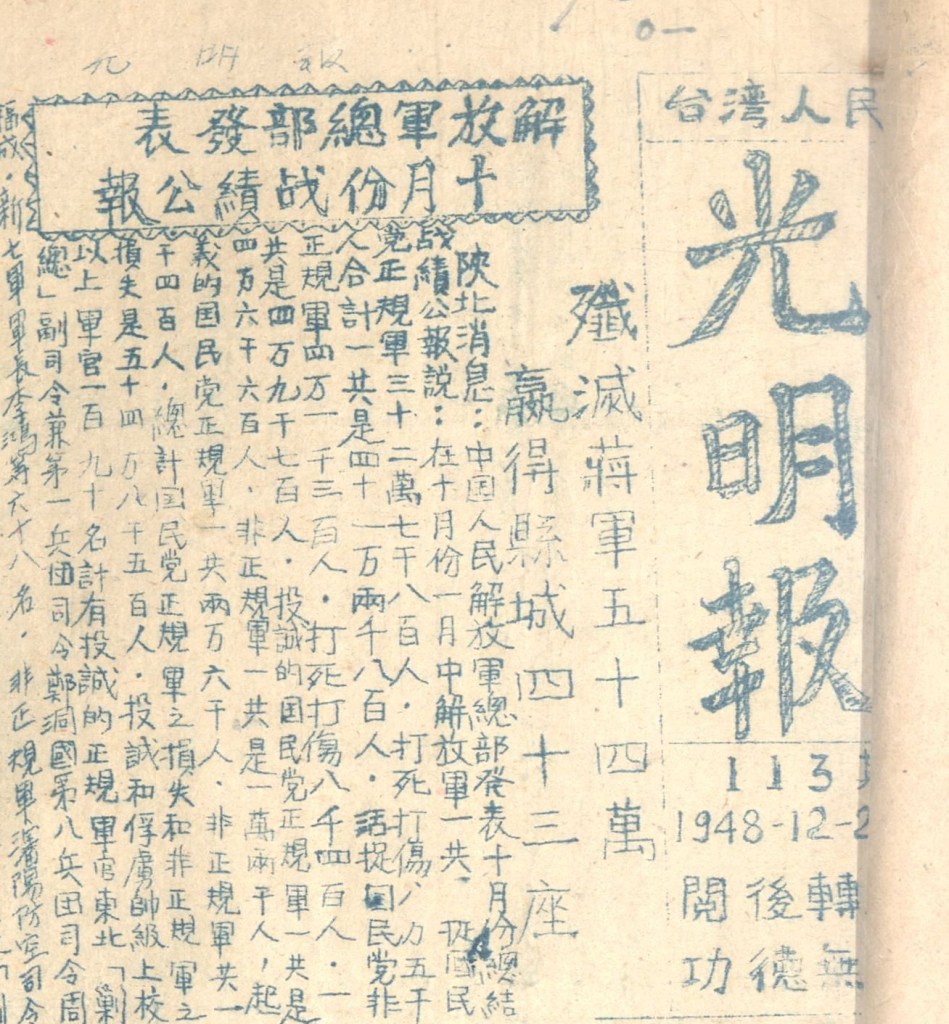 光明報
台湾人民
光明報
113
1948-12-2
閲後轉
功德無
殲滅蔣軍五十四萬
贏得縣城四十三座
解放軍總部發表
十月份战績公報
陕北消息：中国人民解放軍總部發表十月份總結
战績公報說：在十月份一月中解放軍一共
正規軍三十二萬七千八百人．打死打傷八万五千
人合計一共是四十一万兩千八百人．活捉国民党非
正規軍四万一千三百人．打死打傷八千四百人．一
共是四万九千七百人．投誠的国民党正規軍一共是
四万六千六百人．非正規軍一共是一萬兩千人，起
義的国民党正規軍一共兩万六千人．非正規軍共一
千四百人．總計国民党正規軍之損失和非正規軍之
損失是五十四万八千五百人．投誠和俘虜帥級上校
以上軍官一百九十名計有投誠的正規軍官東北「剿
總」副司令兼第一兵団司令鄭洞國第八兵団司令周
福成．新七軍軍長李鴻等六十八名．非正規軍瀋陽防空司令